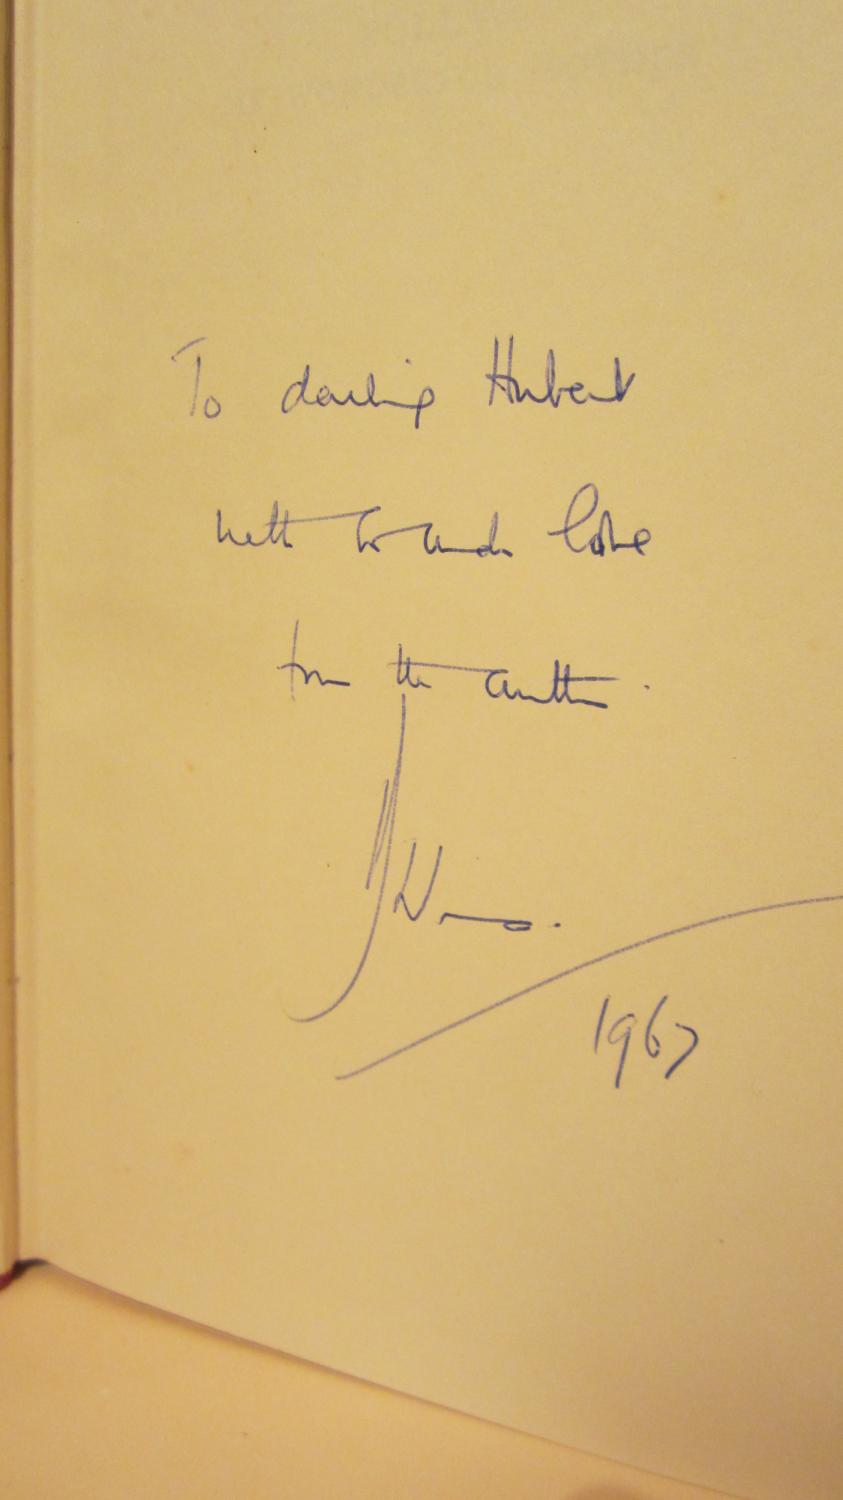 To darling Hubert
with so much love
from the author.
1967